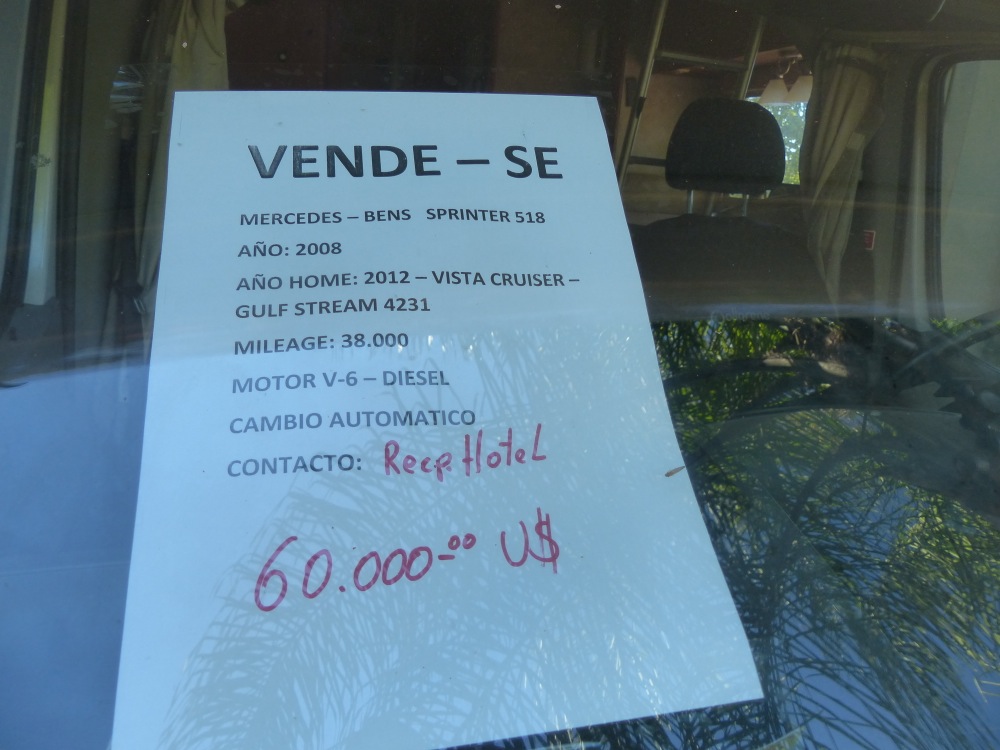 VENDE – SE
MERCEDES – BENS SPRINTER 518
AÑO: 2008
AÑO HOME: 2012 – VISTA CRUISER –
GULF STREAM 4231
MILEAGE: 38.000
MOTOR V-6 – DIESEL
CAMBIO AUTOMATICO
CONTACTO: Recp. HoteL
60.000-⁰⁰ U$